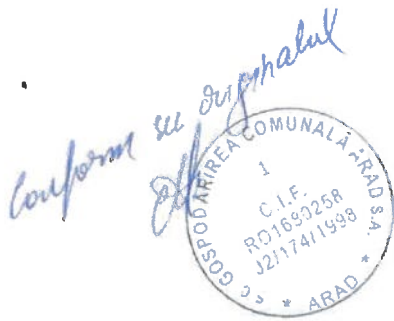 Conform cu originalul
S.C. GOSPODĂRIREA COMUNALĂ ARAD S.A.
1
C.I.F.
RO1690258
J2/174/1998
* ARAD *